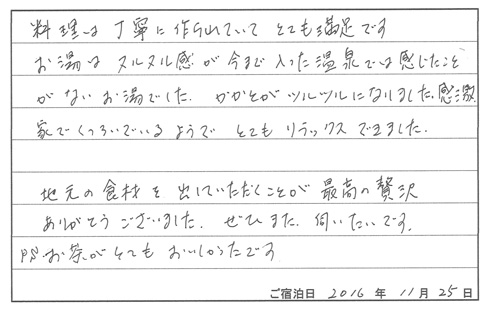 料理は丁寧に作られていて とても満足です
お湯は ヌルヌル感が今まで入った温泉では感じたこと
がないお湯でした. かかとがツルツルになりました. 感激
家でくつろいでいるようで とても リラックス できました.
地元の食材を出していただくことが 最高の贅沢
ありがとう ございました. ぜひまた. 伺いたいです.
PS. お茶がとても おいしかったです
ご宿泊日 2016 年 11 月 25 日